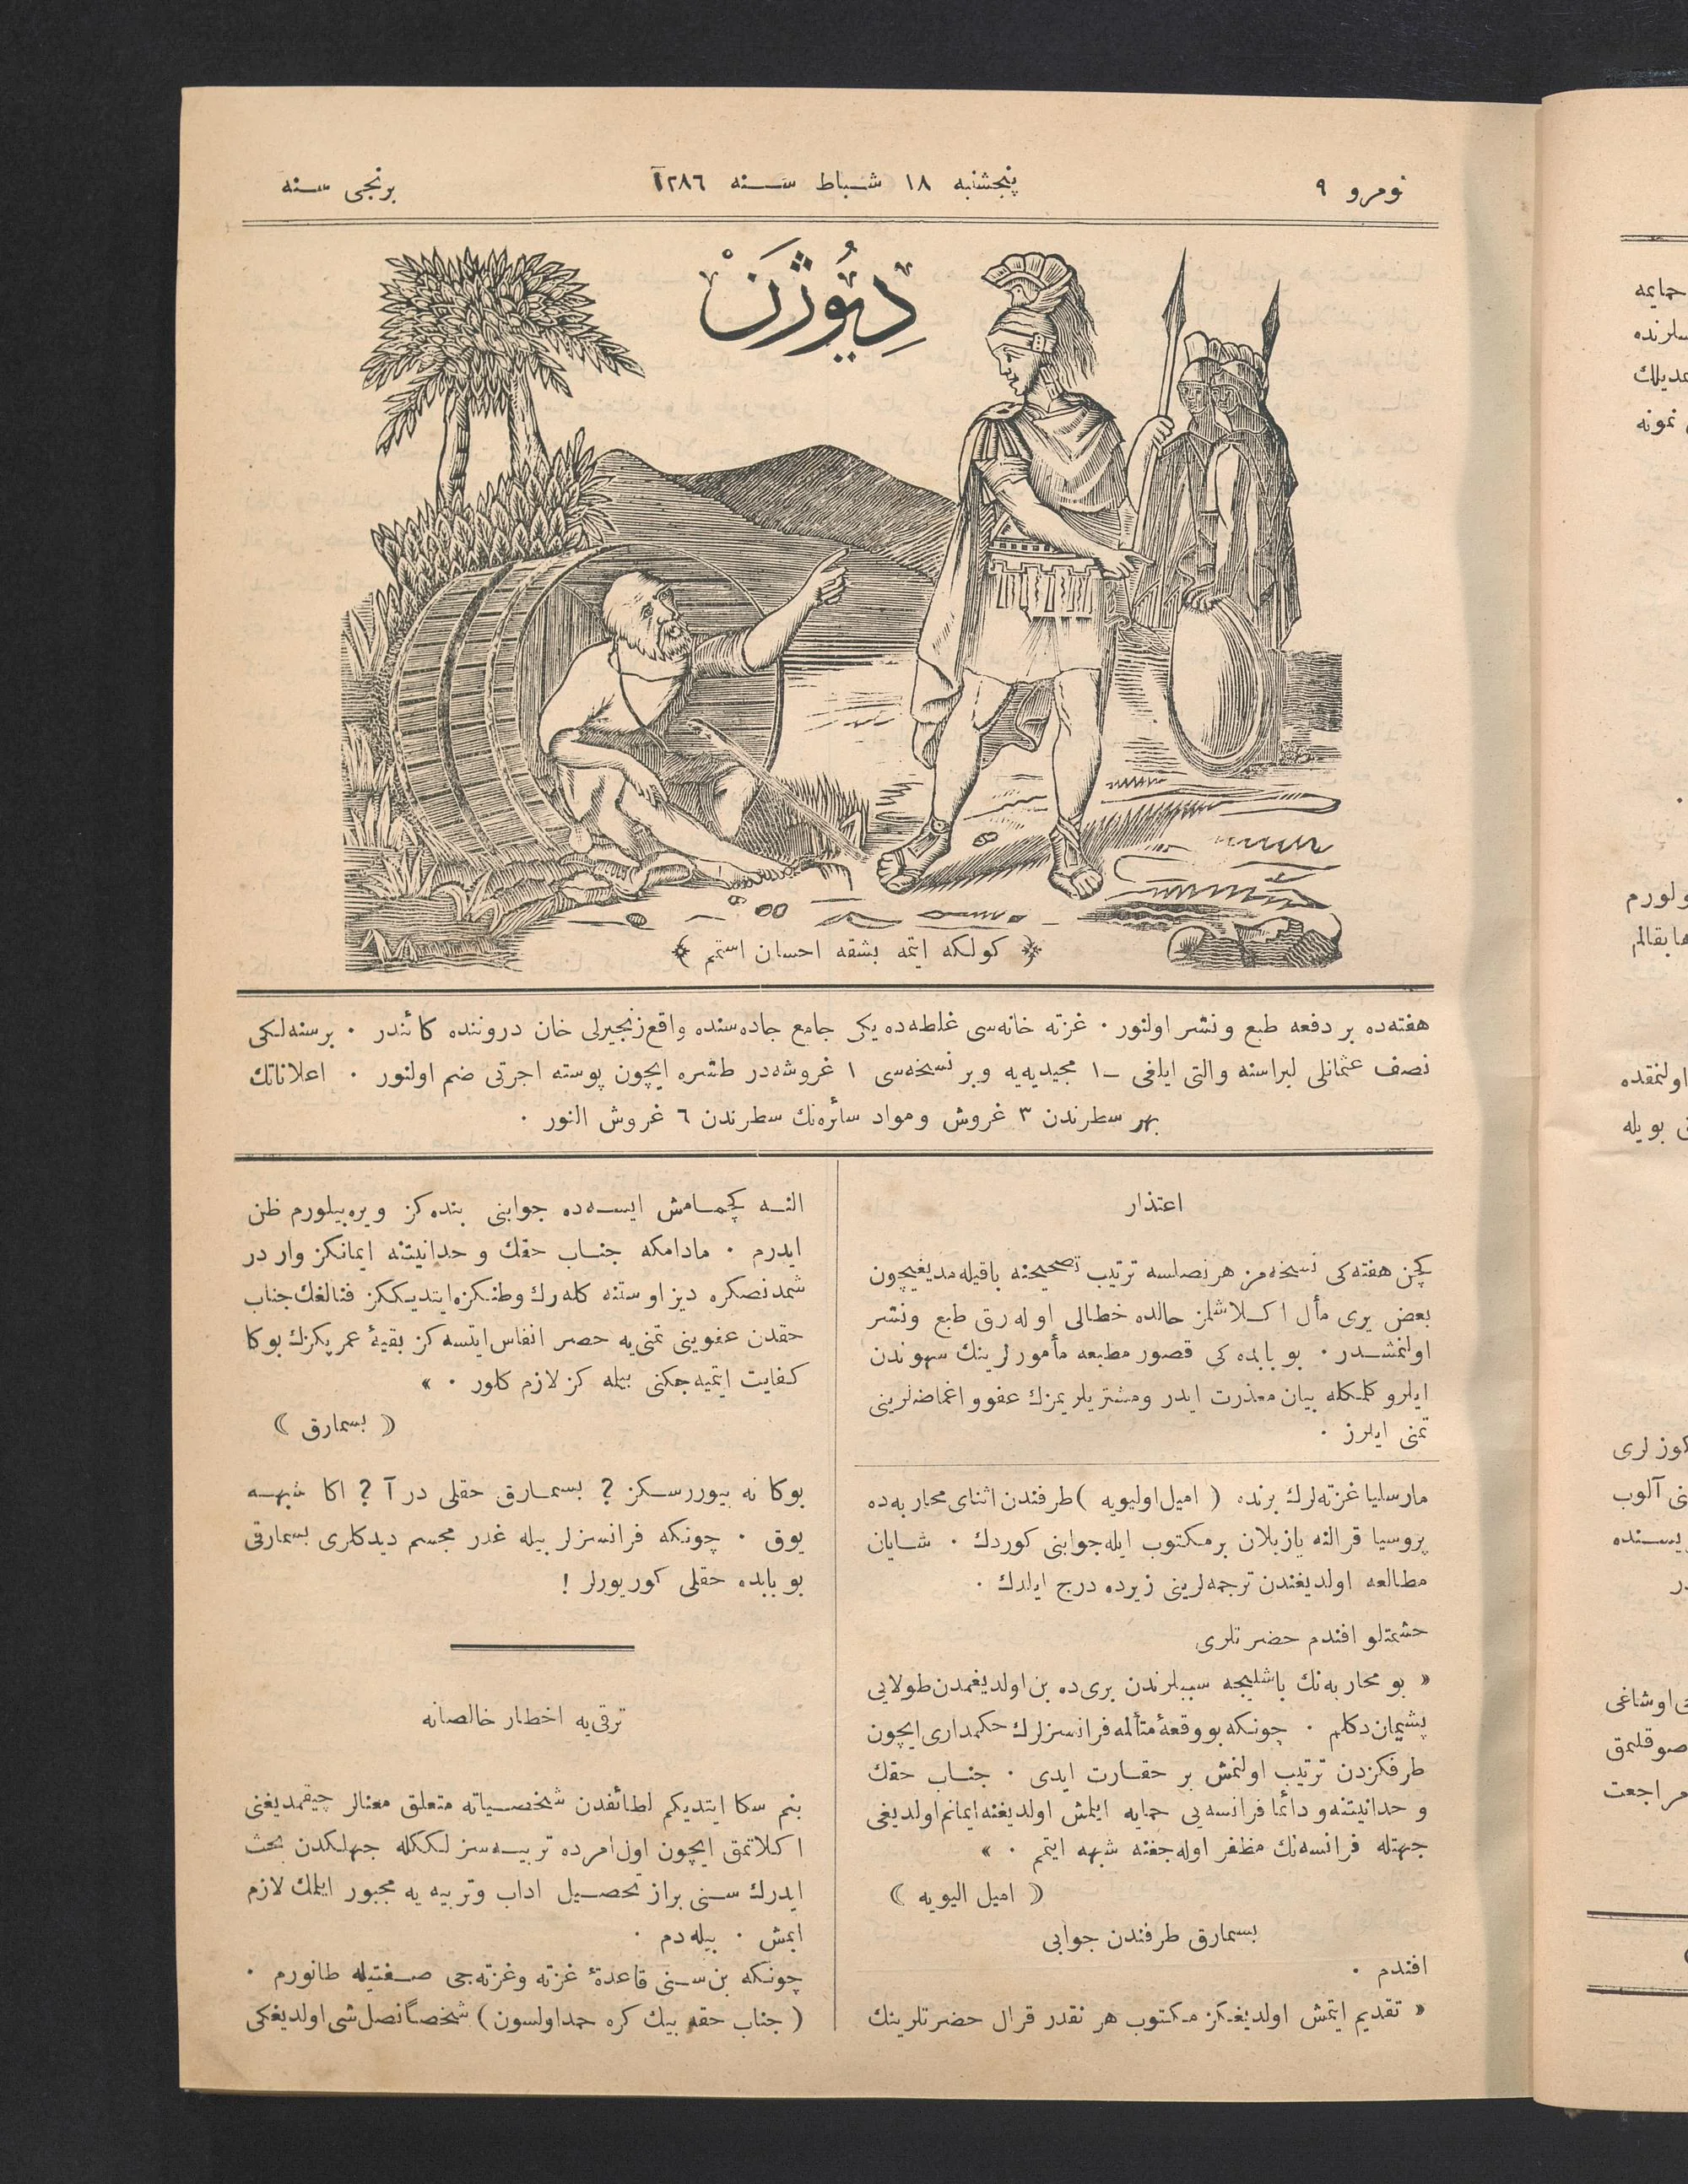 نومرو ٩
پنجشنبه ١٨ شباط سنه ١٢٨٦
برنجى سنه
ديوژن
﴿ كولكه ايتمه بشقه احسان استمم ﴾
هفته‌ده بر دفعه طبع ونشر اولنور ٠ غزته خانه‌سى غلطه‌ده يكى جامع جاده‌سنده واقع زنجيرلى خان دروننده كائندر ٠ برسنه‌لكى
نصف عثمانلى ليراسنه والتى ايلغى ــ١ مجيديه‌يه وبر نسخه‌سى ١ غروشه‌در طشره ايچون پوسته اجرتى ضم اولنور ٠ اعلاناتك
بهر سطرندن ٣ غروش ومواد سائره‌نك سطرندن ٦ غروش النور ٠
اعتذار
كچن هفته‌كى نسخه‌مز هرنصلسه ترتيب تصحيحنه باقيله‌مديغيچون
بعض يرى مأل اكلاشلمز حالده خطالى اوله‌رق طبع ونشر
اولنمشدر ٠ بو بابده كى قصور مطبعه مأمورلرينك سهوندن
ايلرو كلمكله بيان معذرت ايدر ومشتريلريمزك عفوو اغماضلرينى
تمنى ايلرز ٠
مارسليا غزته‌لرك برنده ( اميل اوليويه ) طرفندن اثناى محاربه‌ده
پروسيا قرالنه يازيلان برمكتوب ايله جوابنى كوردك ٠ شايان
مطالعه اولديغندن ترجمه‌لرينى زيرده درج ايلدك ٠
حشمتلو افندم حضرتلرى
« بو محاربه‌نك باشليجه سببلرندن برى‌ده بن اولديغمدن طولايى
پشيمان دكلم ٠ چونكه بو وقعهٔ متألمه فرانسزلرك حكمدارى ايچون
طرفكزدن ترتيب اولنمش بر حقارت ايدى ٠ جناب حقك
و حدانيتنه و دائما فرانسه‌يى حمايه ايلمش اولديغنه ايمانم اولديغى
جهتله فرانسه‌نك مظفر اوله‌جغنه شبهه ايتمم ٠ »
( اميل اليويه )
بسمارق طرفندن جوابى
افندم ٠
« تقديم ايتمش اولديغكز مكتوب هر نقدر قرال حضرتلرينك
النه كچمامش ايسه‌ده جوابنى بنده‌كز ويره‌بيلورم ظن
ايدرم ٠ مادامكه جناب حقك و حدانيتنه ايمانكز وار در
شمدنصكره ديز اوستنه كله‌رك وطنكزه ايتديككز فنالغك جناب
حقدن عفوينى تمنى‌يه حصر انفاس ايتسه‌كز بقيهٔ عمريكزك بوكا
كفايت ايتميه‌جكنى بيله كز لازم كلور ٠ »
( بسمارق )
بوكا نه بيوررسكز ? بسمارق حقلى در آ ? اكا شبهه
يوق ٠ چونكه فرانسزلر بيله غدر مجسم ديدكلرى بسمارقى
بو بابده حقلى كوريورلر !
ترقى‌يه اخطار خالصانه
بنم سكا ايتديكم لطائفدن شخصياته متعلق معنالر چيقمديغنى
اكلاتمق ايچون اول‌امرده تربيه‌سز لككله جهلكدن بحث
ايدرك سنى براز تحصيل اداب وتربيه يه مجبور ايلمك لازم
ايمش ٠ بيله‌دم ٠
چونكه بن سنى قاعدهٔ غزته وغزته‌جى صفتيله طانورم ٠
( جناب حقه بيك كره حمد اولسون ) شخصاً نصل شى اولديغكى